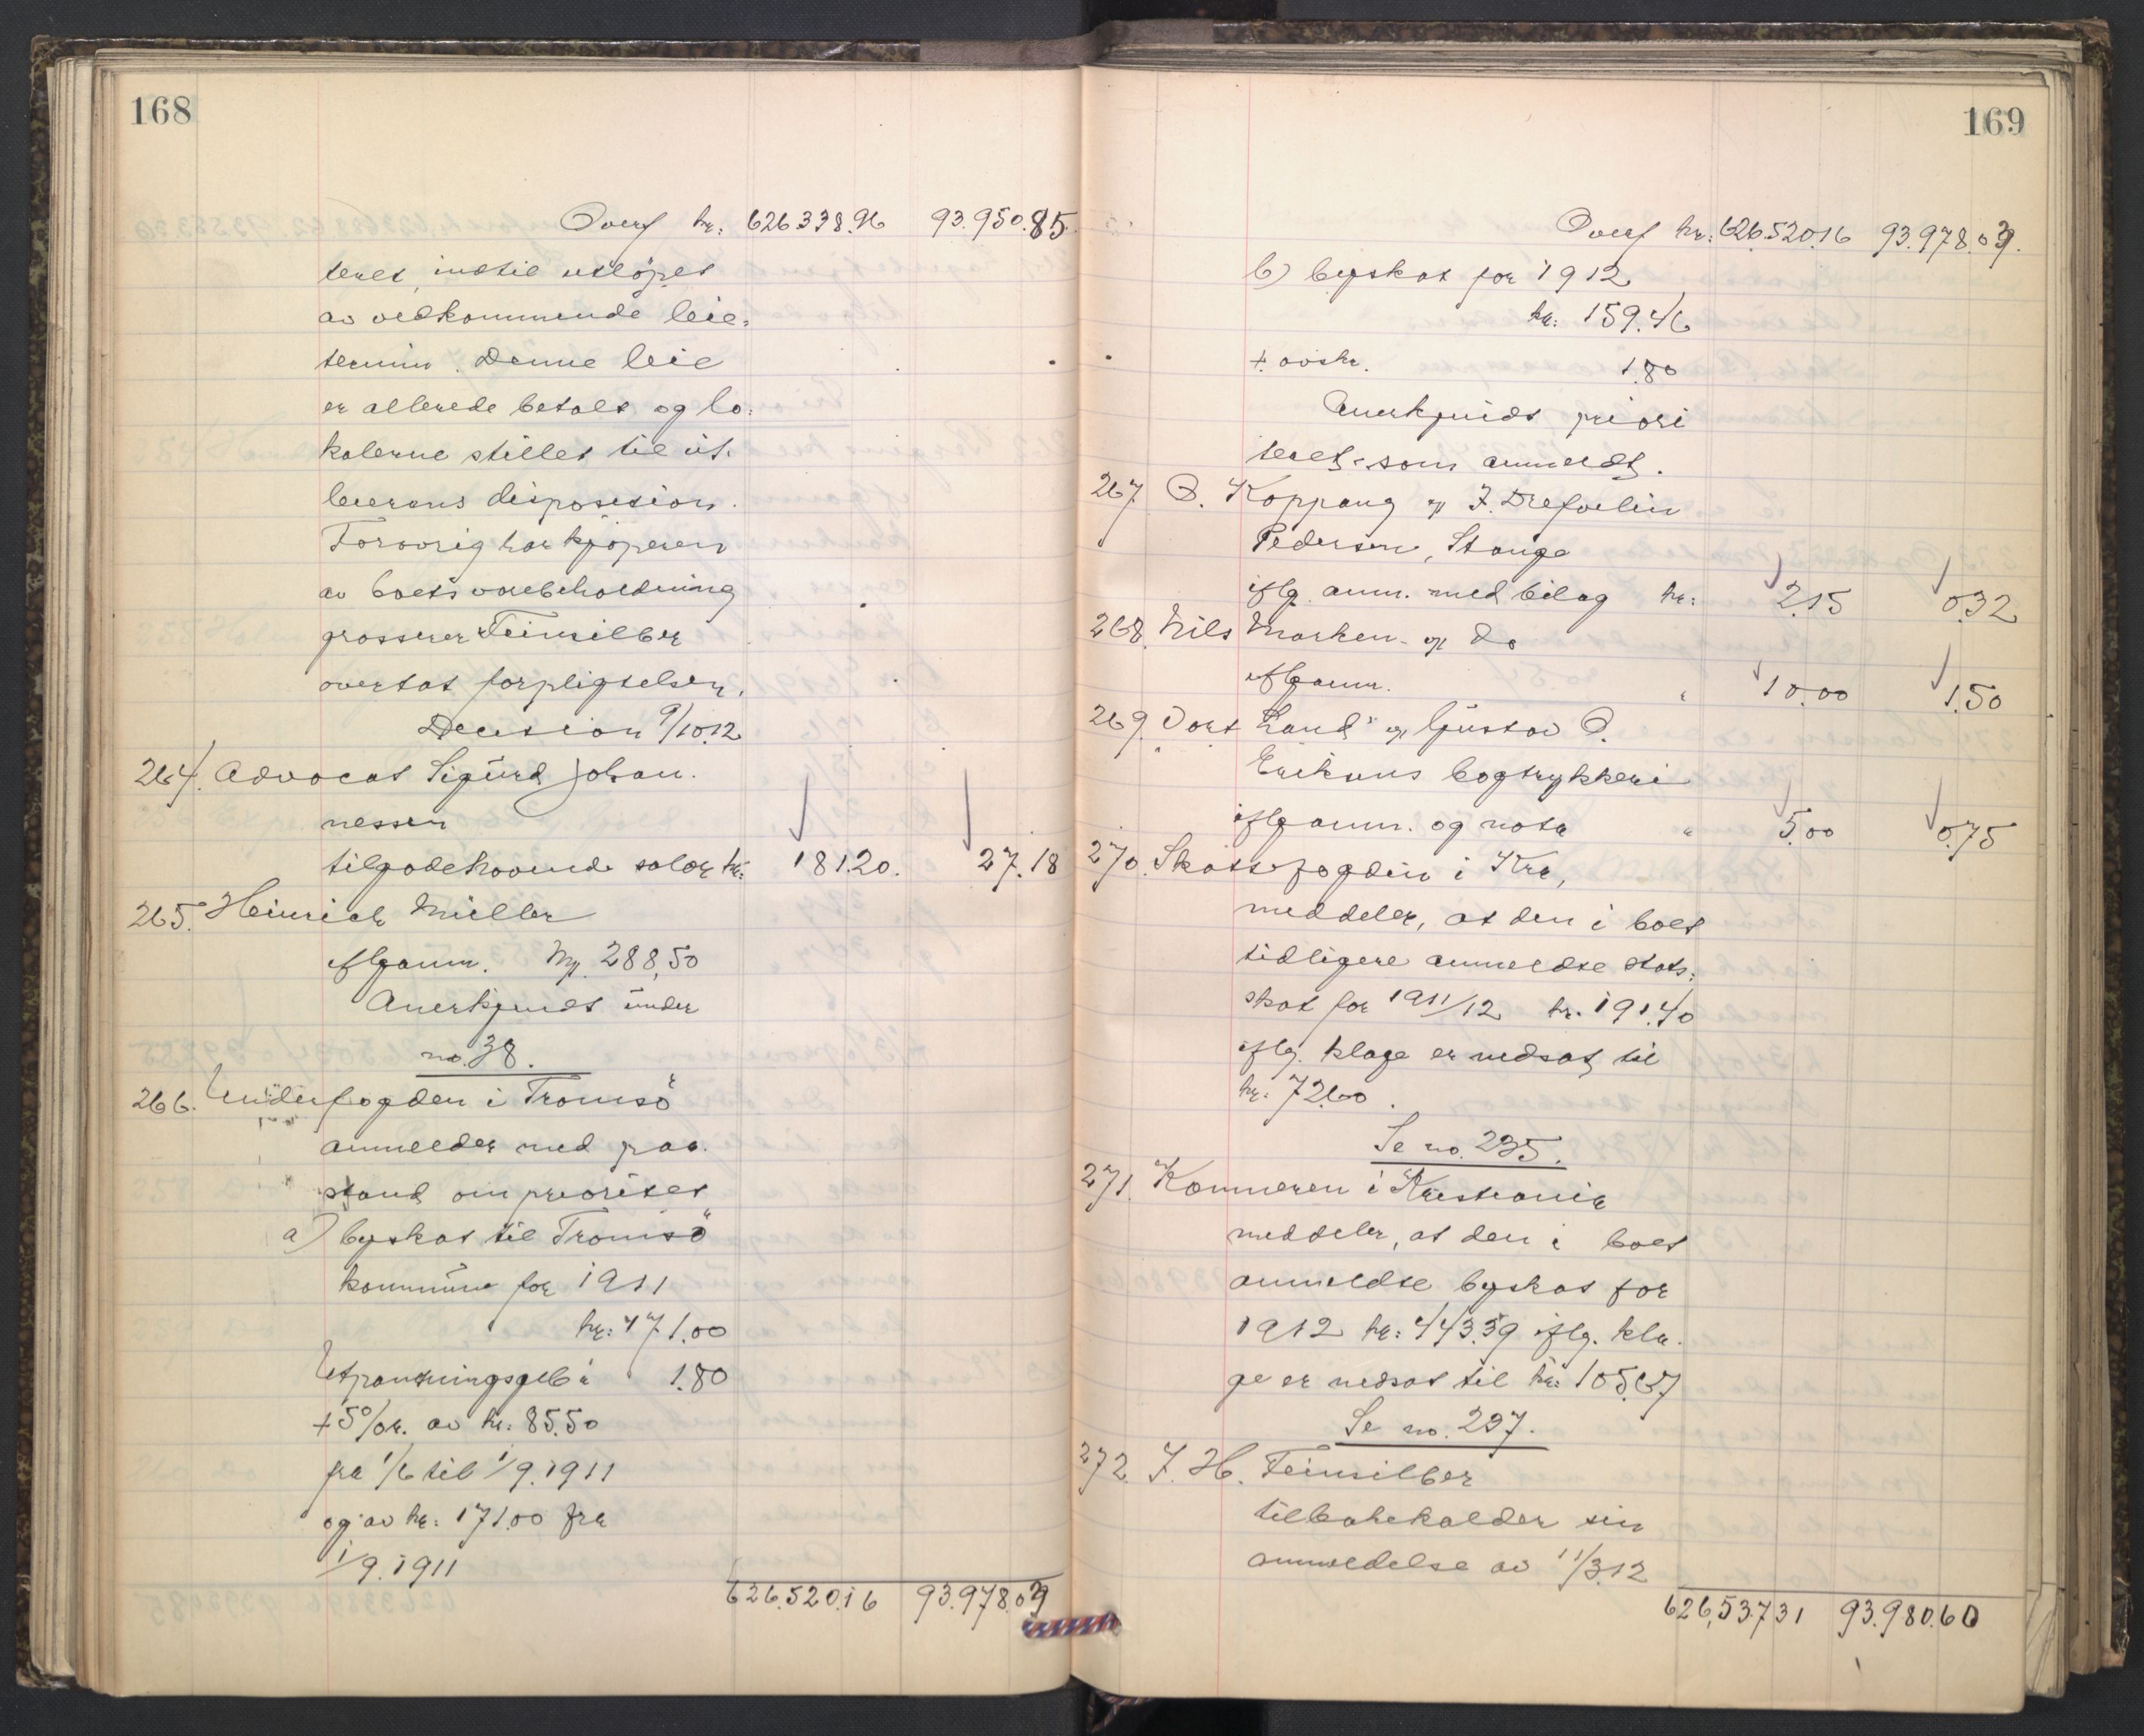 168
Overf kr: 626.338.96 93.950.85
teret, indtil utløpet
av vedkommende leie-
termin. Denne leie
er allerede betalt og lo-
kalerne stillet til ut-
leierens disposision.
Forøvrig har kjøperen
av boets varebeholdning
grosserer Feinsilber
overtat forpligtelsen.
Decision 9/10.12
264. Advocat Sigurd Johan-
nessen
tilgodehavende salær kr: 181.20. 27.18
265. Heinrich Müller
iflg anm. Mk. 288,50
Anerkjendt under
no. 38.
266. Underfogden i Tromsö
anmelder med paa-
stand om prioritet
a) byskat til Tromsö
kommune for 1911
kr: 171.00
Utpantningsgeb " 1.80
+ 5% r. av kr: 85.50
fra 1/6 til 1/9.1911
og av kr: 171.00 fra
1/9.1911
626.520.16 93.978.03
169
Overf kr: 626.520.16 93.978.03.
b) byskat for 1912
kr: 159.46
+ avskr. 1.80
Anerkjendt priori
teret som anmeldt.
267. O. Koppang og J. Drefvelin
Pedersen, Stange
iflg. anm. med bilag kr: 2.15 0.32
268. Nils Morken og do
iflg anm. " 10.00 1.50
269. "Vort Land" og Gustav O.
Eriksens bogtrykkeri
iflg anm. og nota " 5.00 0.75
270. Skattefogden i Kra,
meddeler, at den i boet
tidligere anmeldte stats-
skat for 1911/12 kr. 191.40
iflg. klage er nedsat til
kr: 72.60.
Se no. 235.
271. Kæmneren i Kristiania
meddeler, at den i boet
anmeldte byskat for
1912 kr: 443.39 iflg. kla-
ge er nedsat til kr: 105.67
Se no. 237.
272 J. H. Feinsilber
tilbakekalder sin
anmeldelse av 11/3.12
626,537.31 93.980.60